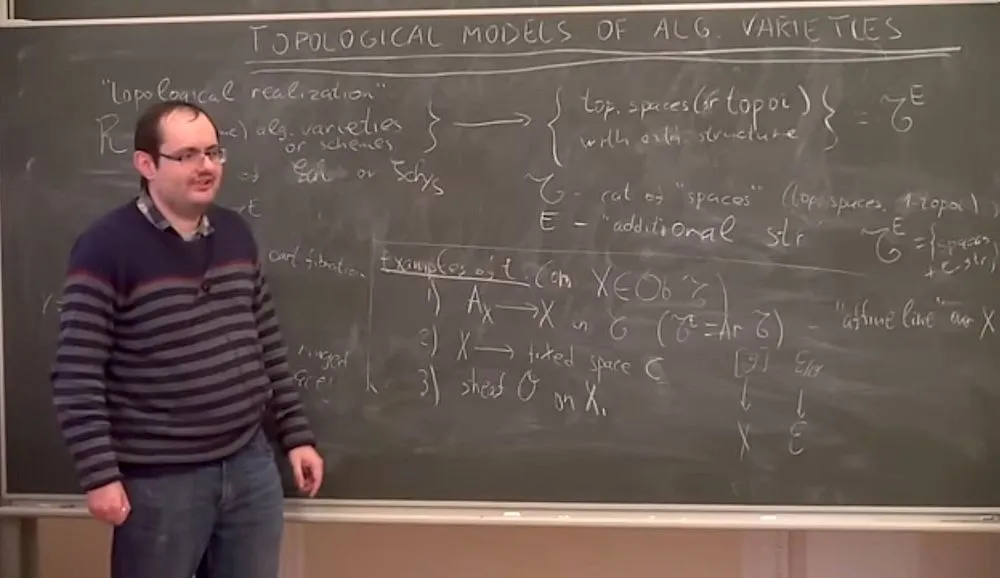 TOPOLOGICAL MODELS OF ALG. VARIETIES
"topological realization"
alg. varieties
or schemes
top. spaces (or topoi)
with extra structure
= 𝒯^E
of or Sch/S
𝒯 - cat of "spaces" (top. spaces, 1-topoi)
E - "additional str
𝒯^E = {spaces
+ E str}
cart fibration
Examples of t. Con X ∈ Ob 𝒯)
1) A_X → X in 𝒯 (𝒯^E = Ar 𝒯) - "affine line" over X
2) X → fixed space C
3) sheaf O on X.
ringed
X